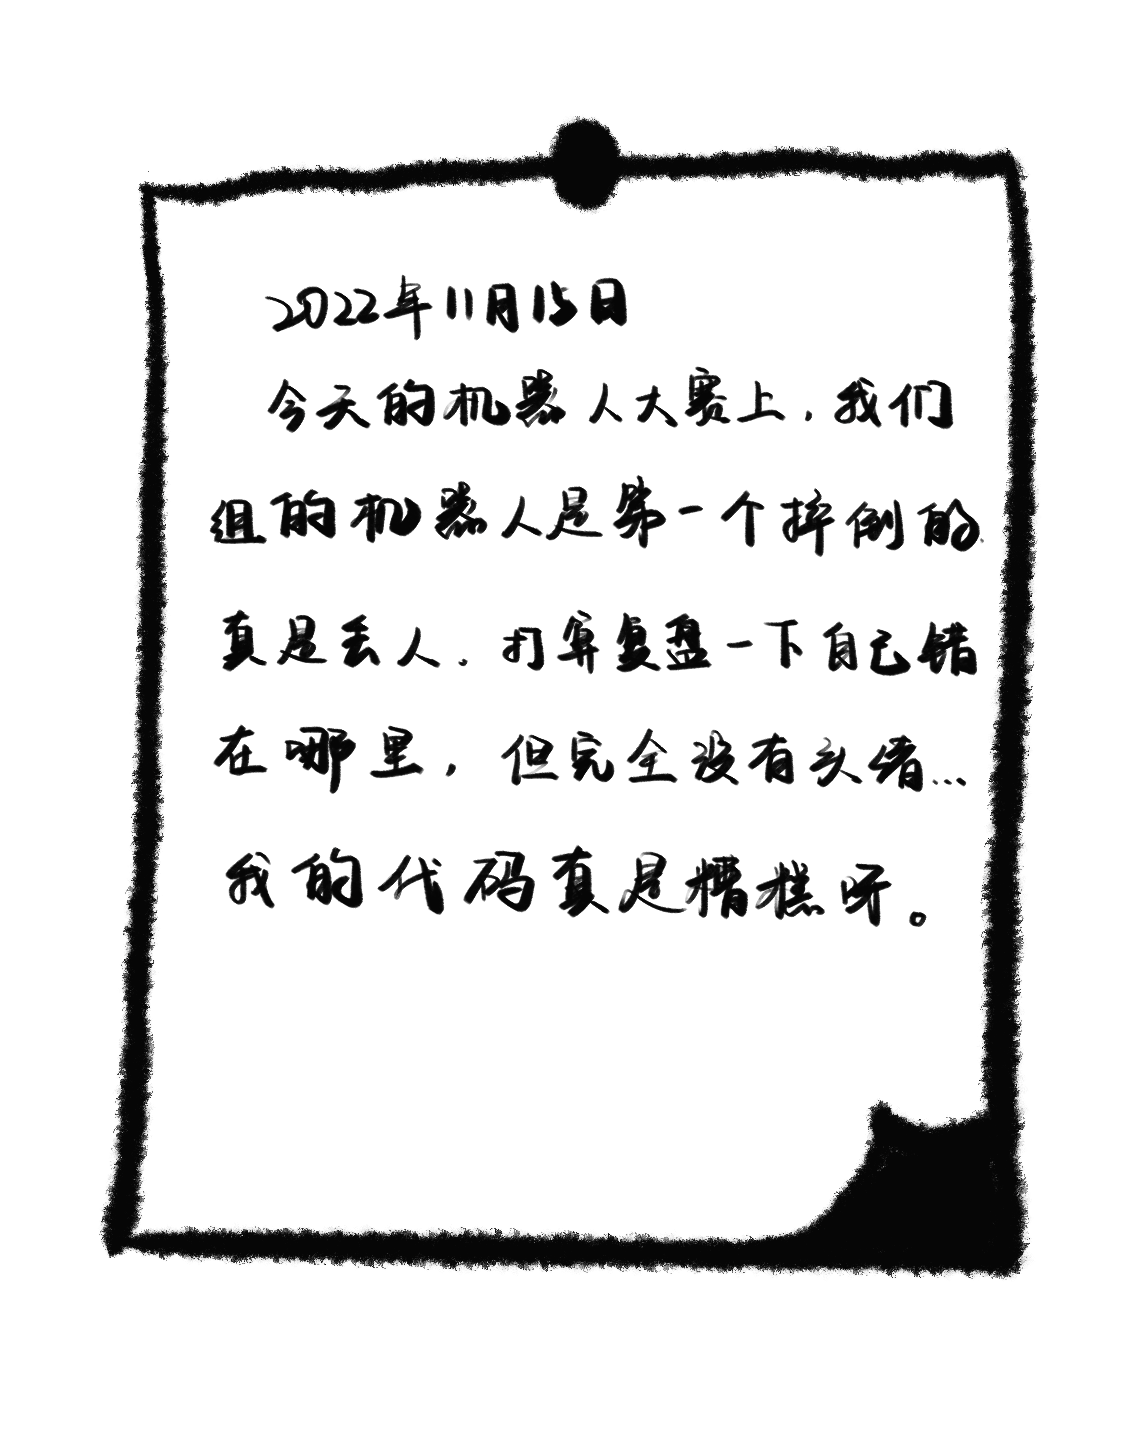 2022年11月15日
今天的机器人大赛上，我们
组的机器人是第一个摔倒的.
真是丢人．打算复盘一下自己错
在哪里，但完全没有头绪...
我的代码真是糟糕呀。